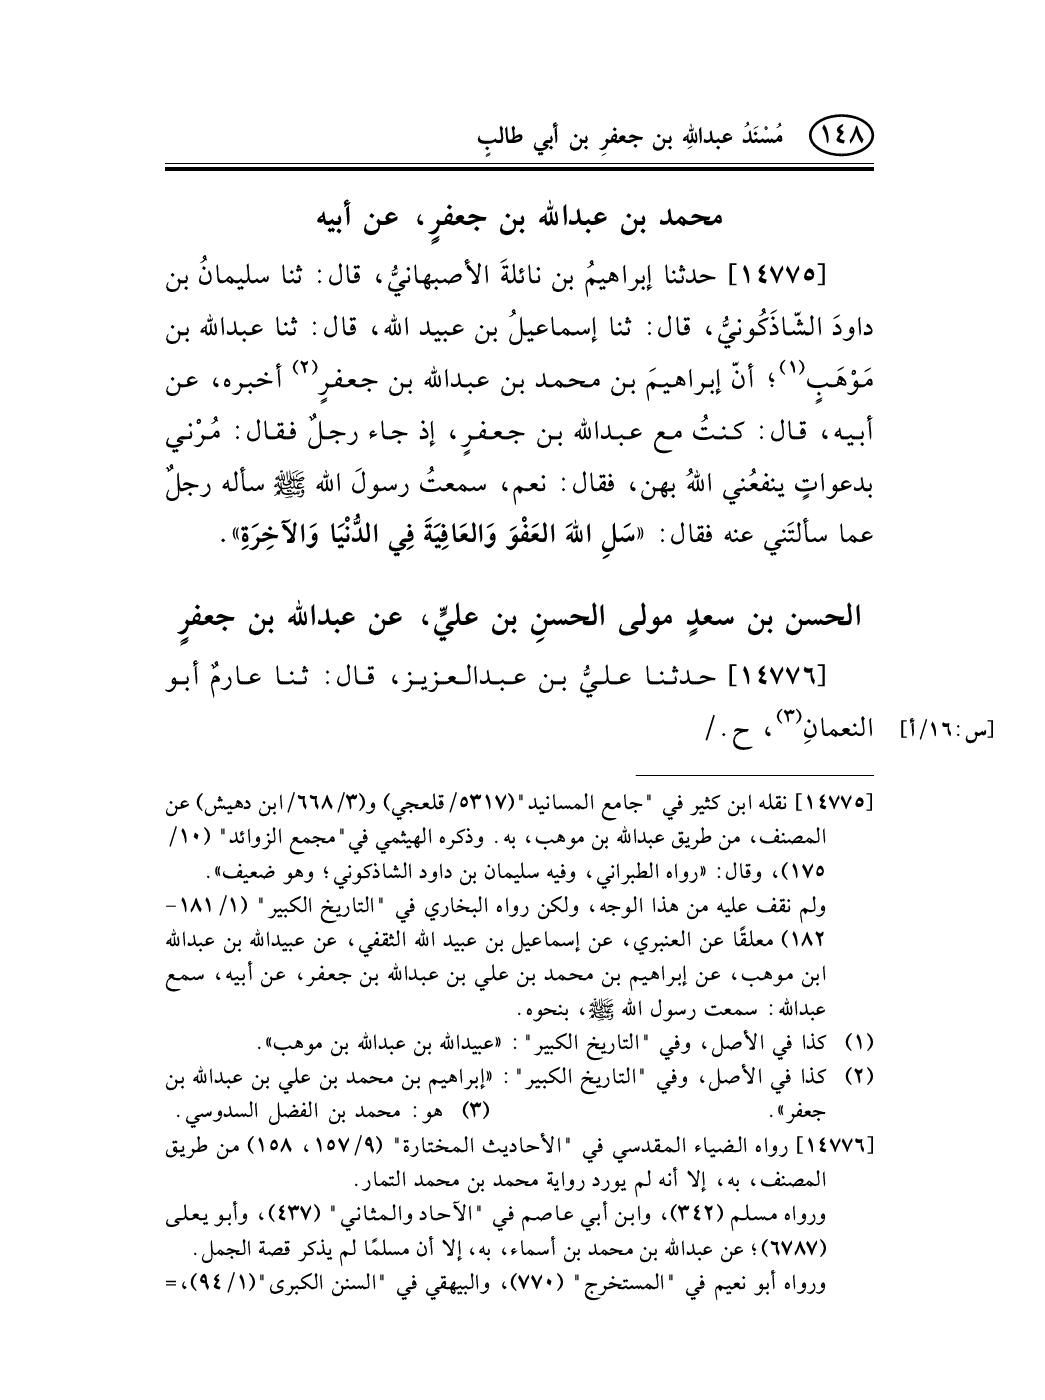 ١٤٨ مُسْنَدُ عبداللهِ بن جعفرِ بن أبي طالبٍ
محمد بن عبدالله بن جعفرٍ، عن أبيه
[١٤٧٧٥] حدثنا إبراهيمُ بن نائلةَ الأصبهانيُّ، قال: ثنا سليمانُ بن
داودَ الشّاذَكُونيُّ، قال: ثنا إسماعيلُ بن عبيد الله، قال: ثنا عبدالله بن
مَوْهَبٍ(١)؛ أنّ إبراهيمَ بن محمد بن عبدالله بن جعفرٍ(٢) أخبره، عن
أبيه، قال: كنتُ مع عبدالله بن جعفرٍ، إذ جاء رجلٌ فقال: مُرْني
بدعواتٍ ينفعُني اللهُ بهن، فقال: نعم، سمعتُ رسولَ الله ﷺ سأله رجلٌ
عما سألتَني عنه فقال: «سَلِ اللهَ العَفْوَ وَالعَافِيَةَ فِي الدُّنْيَا وَالآخِرَةِ».
الحسن بن سعدٍ مولى الحسنِ بن عليٍّ، عن عبدالله بن جعفرٍ
[١٤٧٧٦] حدثنا عليُّ بن عبدالعزيز، قال: ثنا عارمٌ أبو
النعمانِ(٣)، ح. / [س: ١٦/أ]
[١٤٧٧٥] نقله ابن كثير في "جامع المسانيد"(٥٣١٧/ قلعجي) و(٣/ ٦٦٨/ ابن دهيش) عن
المصنف، من طريق عبدالله بن موهب، به. وذكره الهيثمي في"مجمع الزوائد" (١٠/
١٧٥)، وقال: «رواه الطبراني، وفيه سليمان بن داود الشاذكوني؛ وهو ضعيف».
ولم نقف عليه من هذا الوجه، ولكن رواه البخاري في "التاريخ الكبير" (١/ ١٨١-
١٨٢) معلقًا عن العنبري، عن إسماعيل بن عبيد الله الثقفي، عن عبيدالله بن عبدالله
ابن موهب، عن إبراهيم بن محمد بن علي بن عبدالله بن جعفر، عن أبيه، سمع
عبدالله: سمعت رسول الله ﷺ، بنحوه.
(١) كذا في الأصل، وفي "التاريخ الكبير": «عبيدالله بن عبدالله بن موهب».
(٢) كذا في الأصل، وفي "التاريخ الكبير": «إبراهيم بن محمد بن علي بن عبدالله بن
جعفر». (٣) هو: محمد بن الفضل السدوسي.
[١٤٧٧٦] رواه الضياء المقدسي في "الأحاديث المختارة" (٩/ ١٥٧، ١٥٨) من طريق
المصنف، به، إلا أنه لم يورد رواية محمد بن محمد التمار.
ورواه مسلم (٣٤٢)، وابن أبي عاصم في "الآحاد والمثاني" (٤٣٧)، وأبو يعلى
(٦٧٨٧)؛ عن عبدالله بن محمد بن أسماء، به، إلا أن مسلمًا لم يذكر قصة الجمل.
ورواه أبو نعيم في "المستخرج" (٧٧٠)، والبيهقي في "السنن الكبرى"(١/ ٩٤)،=